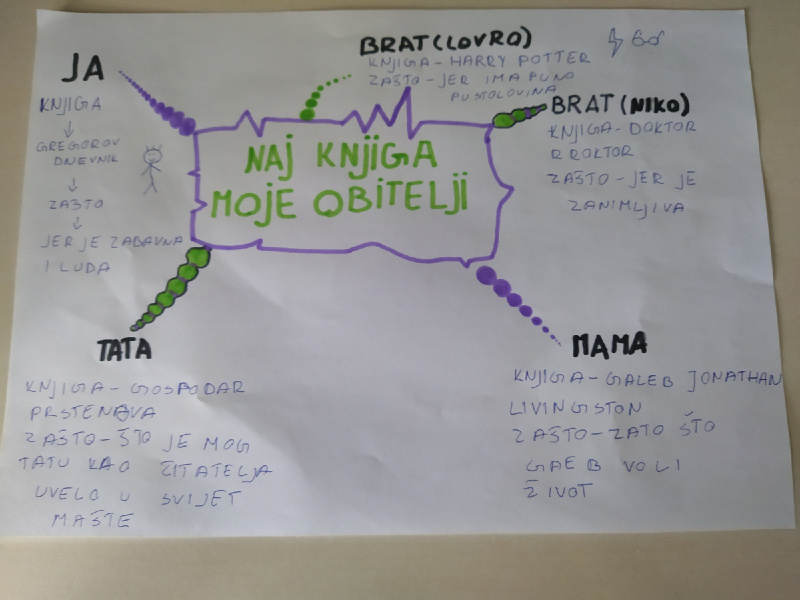 JA
KNJIGA
GREGOROV
DNEVNIK
ZAŠTO
JER JE ZABAVNA
I LUDA
BRAT (LOVRO)
KNJIGA - HARRY POTTER
ZAŠTO - JER IMA PUNO
PUSTOLOVINA
BRAT (NIKO)
KNJIGA - DOKTOR
PROKTOR
ZAŠTO - JER JE
ZANIMLJIVA
NAJ KNJIGA
MOJE OBITELJI
TATA
KNJIGA - GOSPODAR
PRSTENAVA
ZAŠTO - ŠTO JE MOG
TATU KAO ČITATELJA
UVELO U SVIJET
MAŠTE
MAMA
KNJIGA - GALEB JONATHAN
LIVINGSTON
ZAŠTO - ZATO ŠTO
GAEB VOLI
ŽIVOT